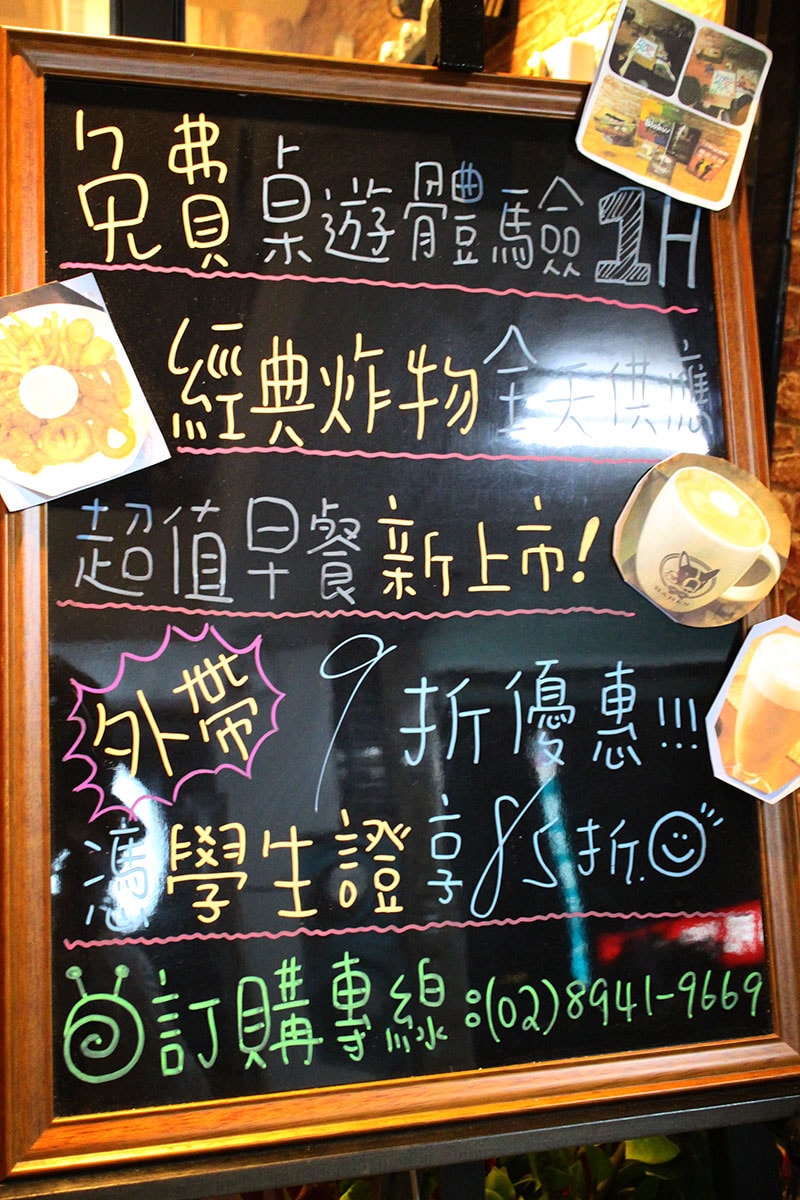 免費桌遊體驗1H
經典炸物全天供應
超值早餐新上市!
外帶9折優惠!!!
憑學生證享85折
訂購專線:(02)8941-9669